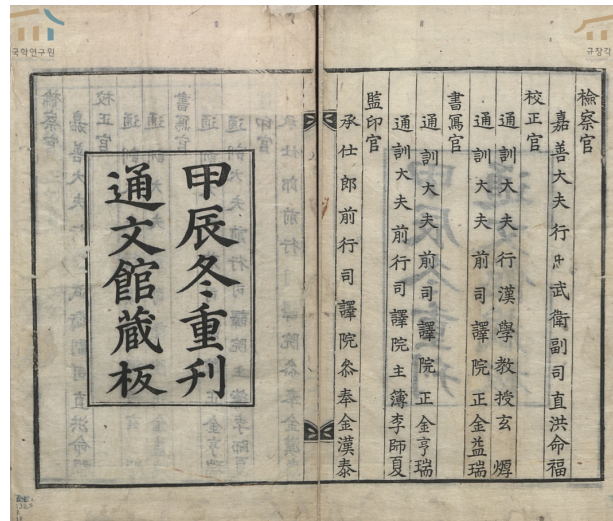 檢察官
嘉善大夫行忠武衛副司直洪命福
校正官
通訓大夫行漢學教授玄㷜
通訓大夫前司譯院正金益瑞
書寫官
通訓大夫前司譯院正金亨瑞
通訓大夫前行司譯院主簿李師夏
監印官
承仕郎前行司譯院叅奉金漢泰
甲辰冬重刊
通文館藏板
국학연구원
규장각